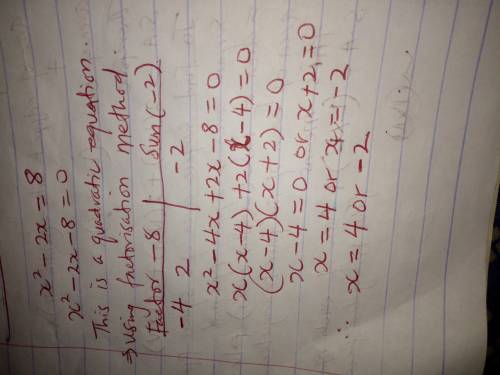 x² - 2x = 8
x² - 2x - 8 = 0
This is a quadratic equation.
⇒ Using factorisation method
Factor - 8 | Sum (-2)
-4 2 | -2
x² - 4x + 2x - 8 = 0
x(x - 4) + 2(x - 4) = 0
(x - 4)(x + 2) = 0
x - 4 = 0 or x + 2 = 0
x = 4 or x = -2
∴ x = 4 or -2